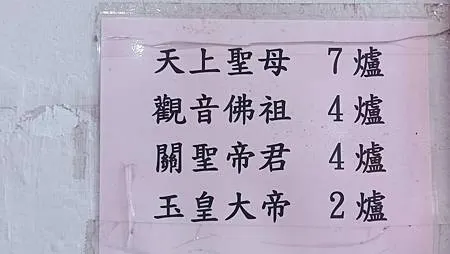 天上聖母 7爐
觀音佛祖 4爐
關聖帝君 4爐
玉皇大帝 2爐